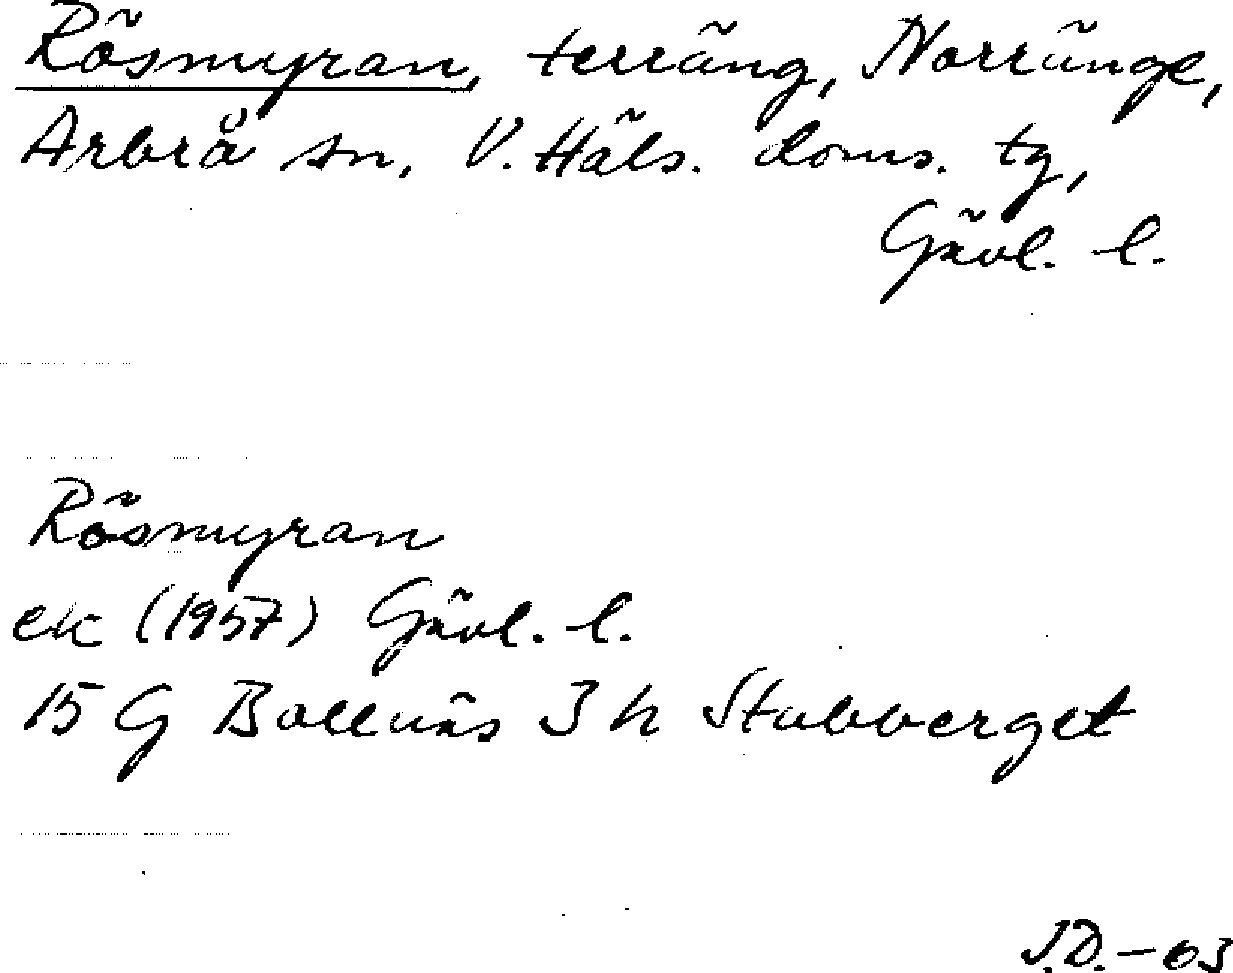 Rösmyran, terräng, Norränge,
Arbrå sn, V. Häls. doms. tg,
Gävl. l.
Rösmyran
ek (1957) Gävl. l.
15 G Bollnäs 3 h Stabberget
J.D. -03